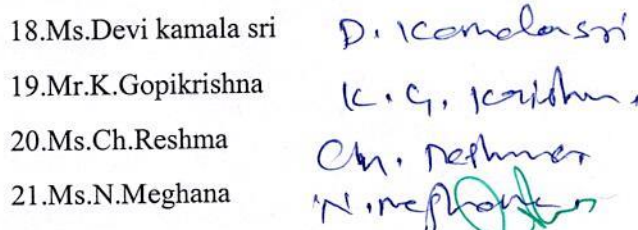 18.Ms.Devi kamala sri D. Kamalasri
19.Mr.K.Gopikrishna K. G. Krishna.
20.Ms.Ch.Reshma Ch. Reshma
21.Ms.N.Meghana N. Meghana